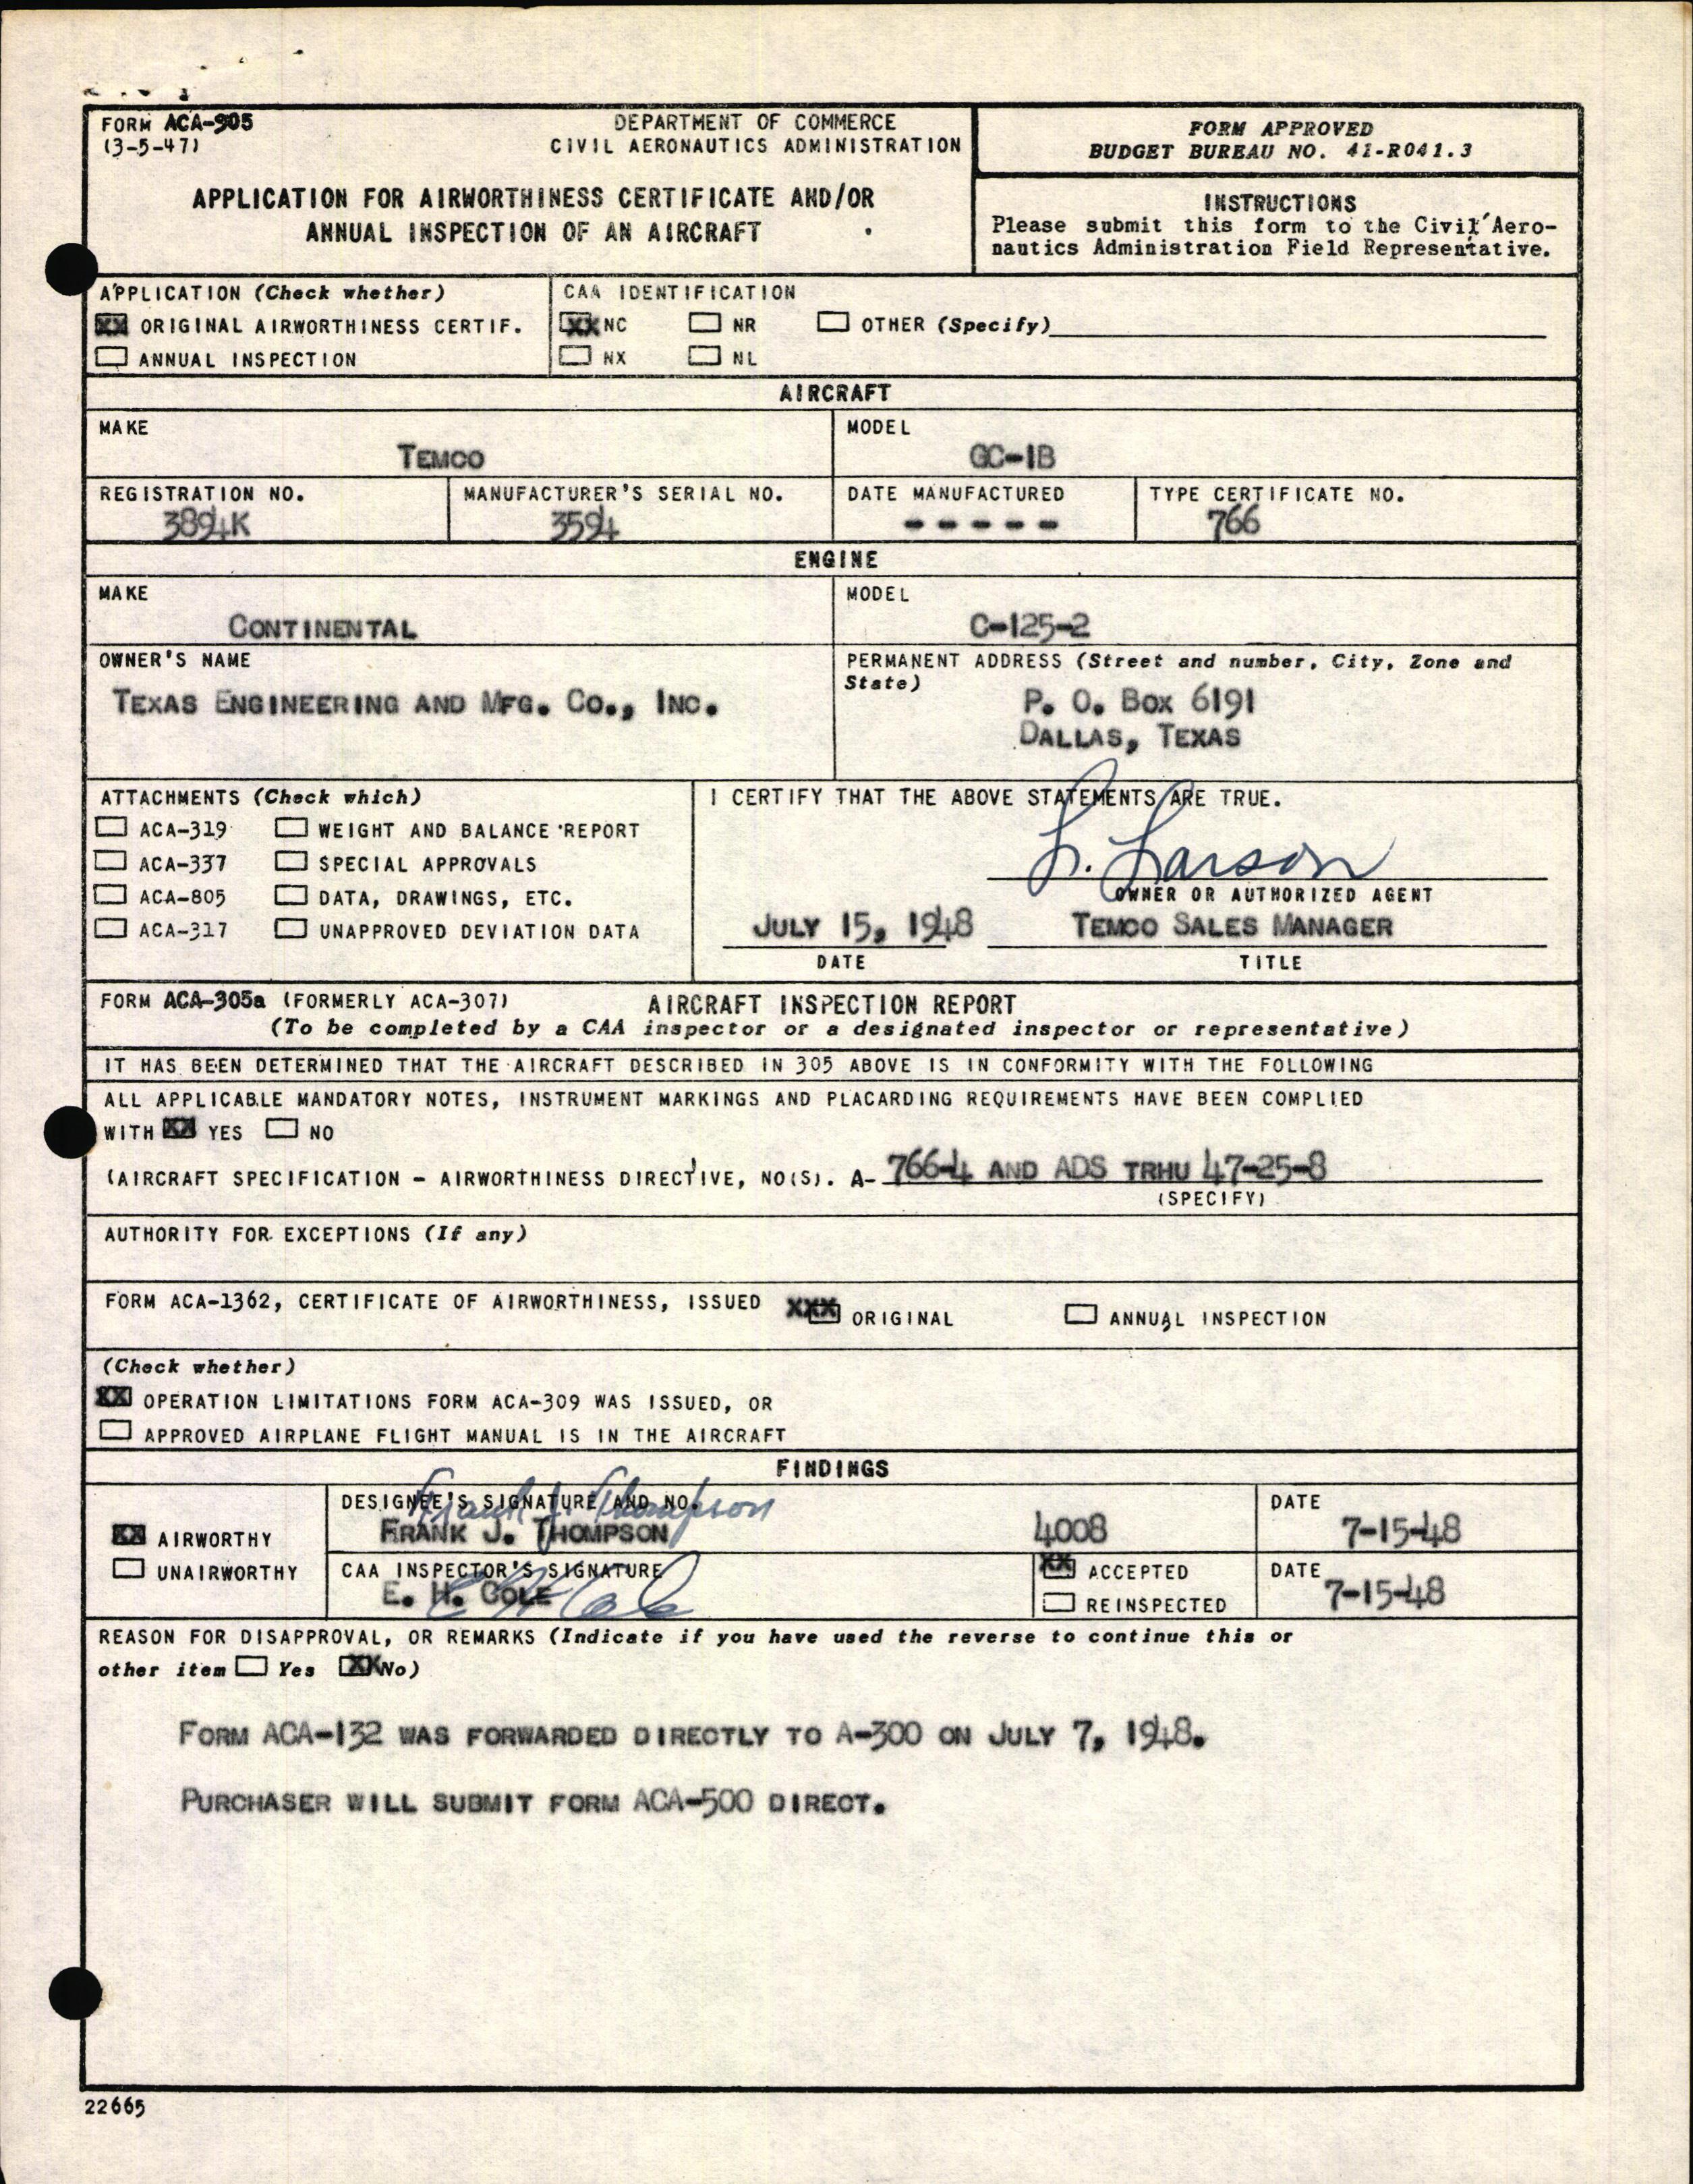 FORM ACA-305
(3-5-47)
DEPARTMENT OF COMMERCE
CIVIL AERONAUTICS ADMINISTRATION
APPLICATION FOR AIRWORTHINESS CERTIFICATE AND/OR
ANNUAL INSPECTION OF AN AIRCRAFT
FORM APPROVED
BUDGET BUREAU NO. 41-R041.3
INSTRUCTIONS
Please submit this form to the Civil Aero-
nautics Administration Field Representative.
APPLICATION (Check whether)
XX ORIGINAL AIRWORTHINESS CERTIF.
ANNUAL INSPECTION
CAA IDENTIFICATION
XX NC NR OTHER (Specify)
NX NL
AIRCRAFT
MAKE
TEMCO
MODEL
GC-1B
REGISTRATION NO.
3894K
MANUFACTURER'S SERIAL NO.
3594
DATE MANUFACTURED
- - - - -
TYPE CERTIFICATE NO.
766
ENGINE
MAKE
CONTINENTAL
MODEL
C-125-2
OWNER'S NAME
TEXAS ENGINEERING AND MFG. CO., INC.
PERMANENT ADDRESS (Street and number, City, Zone and
State)
P. O. BOX 6191
DALLAS, TEXAS
ATTACHMENTS (Check which)
ACA-319 WEIGHT AND BALANCE REPORT
ACA-337 SPECIAL APPROVALS
ACA-805 DATA, DRAWINGS, ETC.
ACA-317 UNAPPROVED DEVIATION DATA
I CERTIFY THAT THE ABOVE STATEMENTS ARE TRUE.
L. Larson
OWNER OR AUTHORIZED AGENT
JULY 15, 1948 TEMCO SALES MANAGER
DATE TITLE
FORM ACA-305a (FORMERLY ACA-307) AIRCRAFT INSPECTION REPORT
(To be completed by a CAA inspector or a designated inspector or representative)
IT HAS BEEN DETERMINED THAT THE AIRCRAFT DESCRIBED IN 305 ABOVE IS IN CONFORMITY WITH THE FOLLOWING
ALL APPLICABLE MANDATORY NOTES, INSTRUMENT MARKINGS AND PLACARDING REQUIREMENTS HAVE BEEN COMPLIED
WITH XX YES NO
(AIRCRAFT SPECIFICATION - AIRWORTHINESS DIRECTIVE, NO(S). A- 766-4 AND ADS TRHU 47-25-8
(SPECIFY)
AUTHORITY FOR EXCEPTIONS (If any)
FORM ACA-1362, CERTIFICATE OF AIRWORTHINESS, ISSUED XXX ORIGINAL ANNUAL INSPECTION
(Check whether)
XX OPERATION LIMITATIONS FORM ACA-309 WAS ISSUED, OR
APPROVED AIRPLANE FLIGHT MANUAL IS IN THE AIRCRAFT
FINDINGS
XX AIRWORTHY
UNAIRWORTHY
DESIGNEE'S SIGNATURE AND NO.
Frank J. Thompson
FRANK J. THOMPSON 4008
DATE
7-15-48
CAA INSPECTOR'S SIGNATURE
E. H. COLE
E H Cole
XX ACCEPTED
REINSPECTED
DATE
7-15-48
REASON FOR DISAPPROVAL, OR REMARKS (Indicate if you have used the reverse to continue this or
other item Yes XX No)
FORM ACA-132 WAS FORWARDED DIRECTLY TO A-300 ON JULY 7, 1948.
PURCHASER WILL SUBMIT FORM ACA-500 DIRECT.
22665